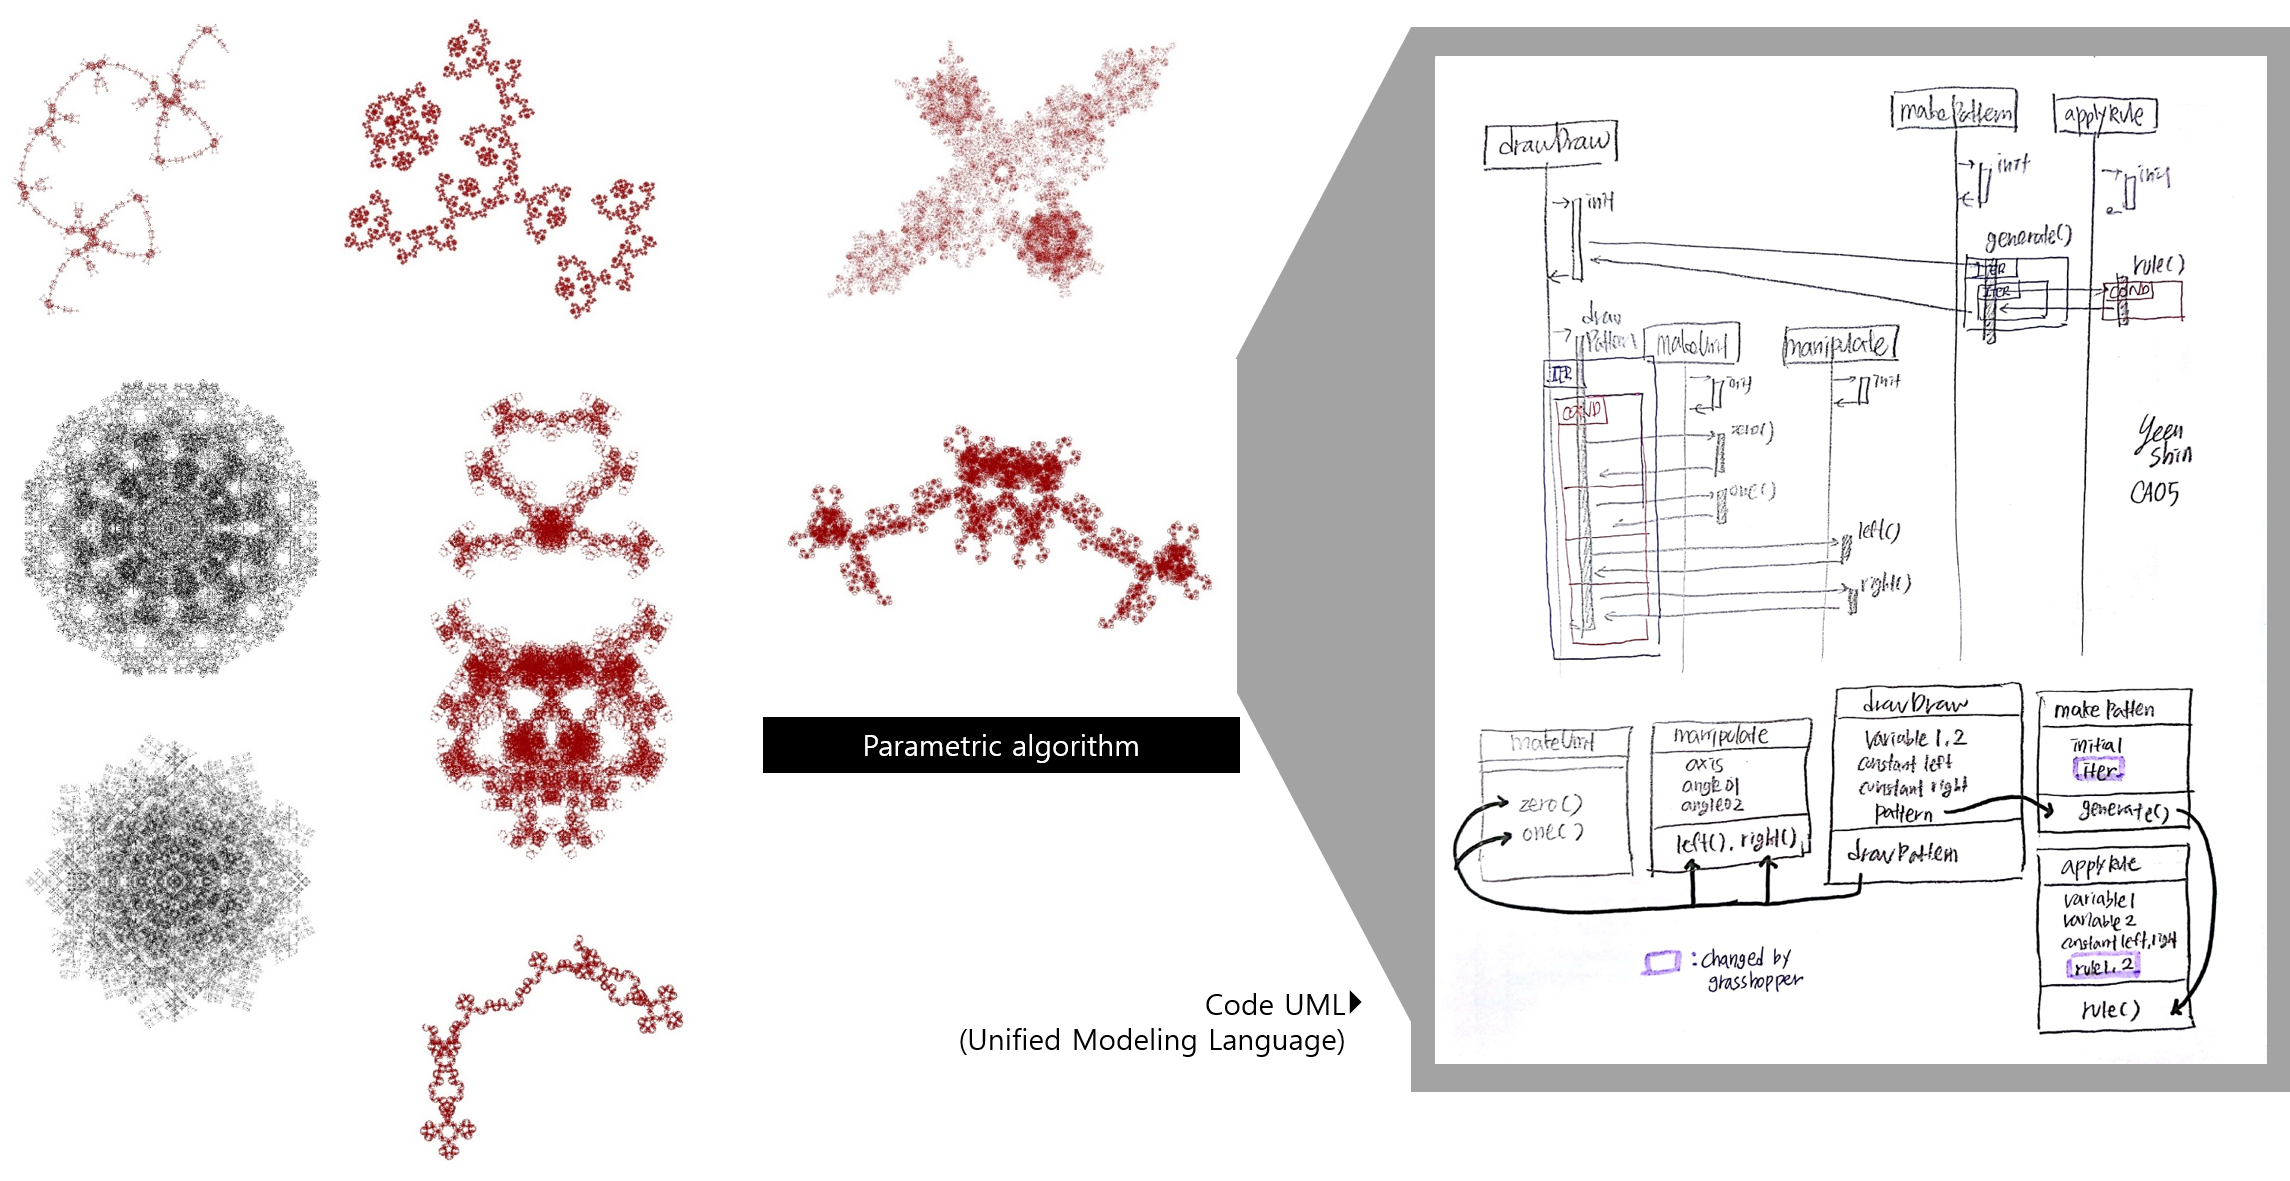 Parametric algorithm
Code UML
(Unified Modeling Language)
drawDraw
makePattern
applyRule
init
init
init
generate()
ITER
ITER
rule()
COND
draw
Pattern
makeUnit
manipulate
ITER
COND
init
init
zero()
one()
left()
right()
Yeen
Shin
CA05
makeUnit
zero()
one()
manipulate
axis
angle01
angle02
left(), right()
drawDraw
variable 1, 2
constant left
constant right
pattern
drawPattern
make Patten
initial
iter
generate()
applyRule
variable1
variable2
constant left, right
rule1, 2
rule()
: changed by
grasshopper